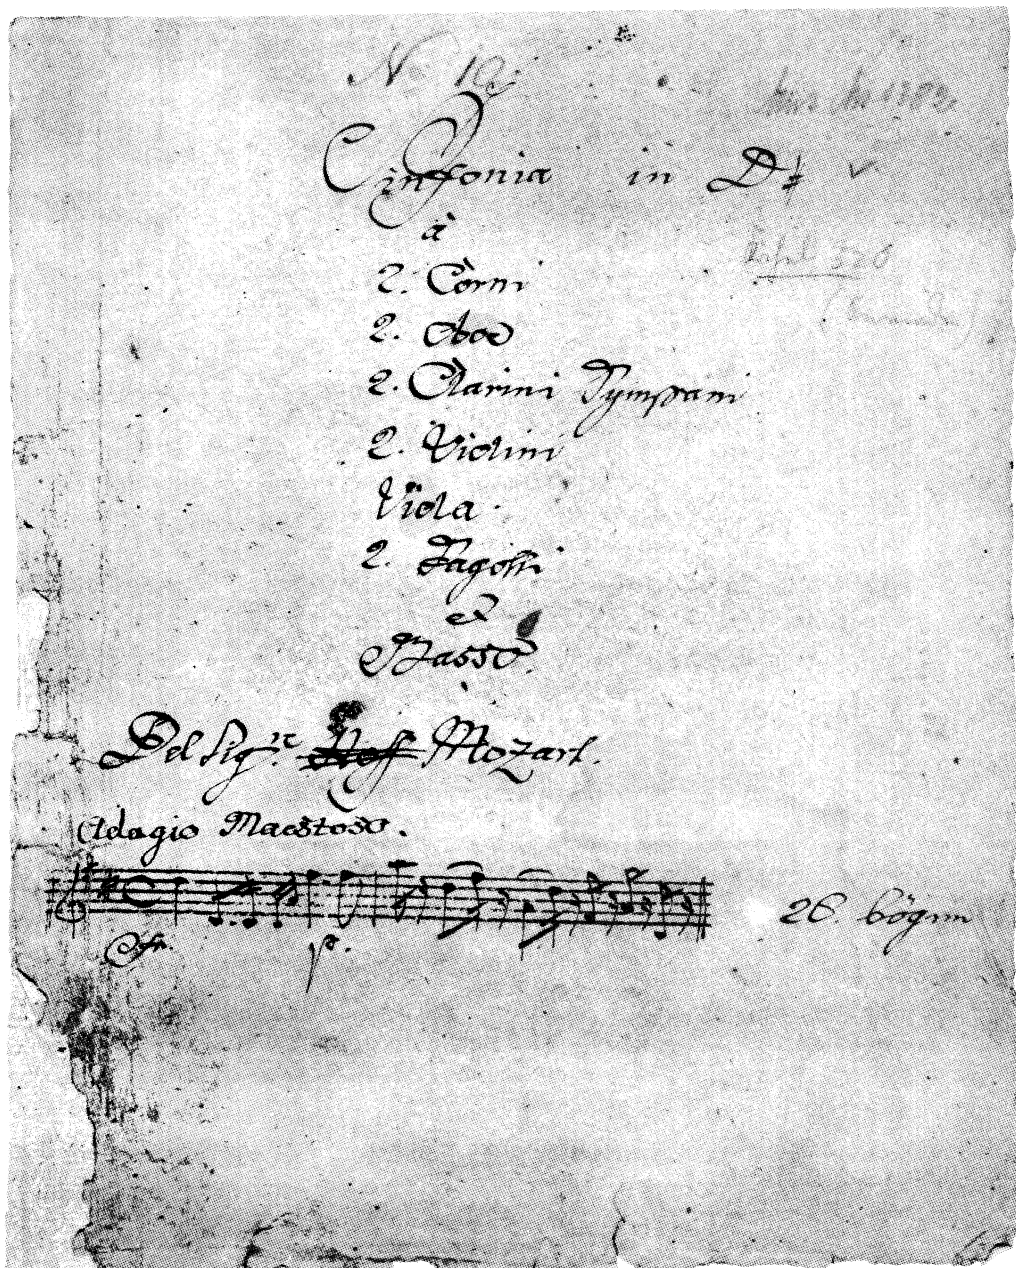 No 19.
Sinfonia in D♯
à
2. Corni
2. Oboe
2. Clarini Tympani
2. Violini
Viola.
2. Fagotti
e
Basso.
Del Sigre. Mozart.
Adagio Maestoso.
p.
26. bögen